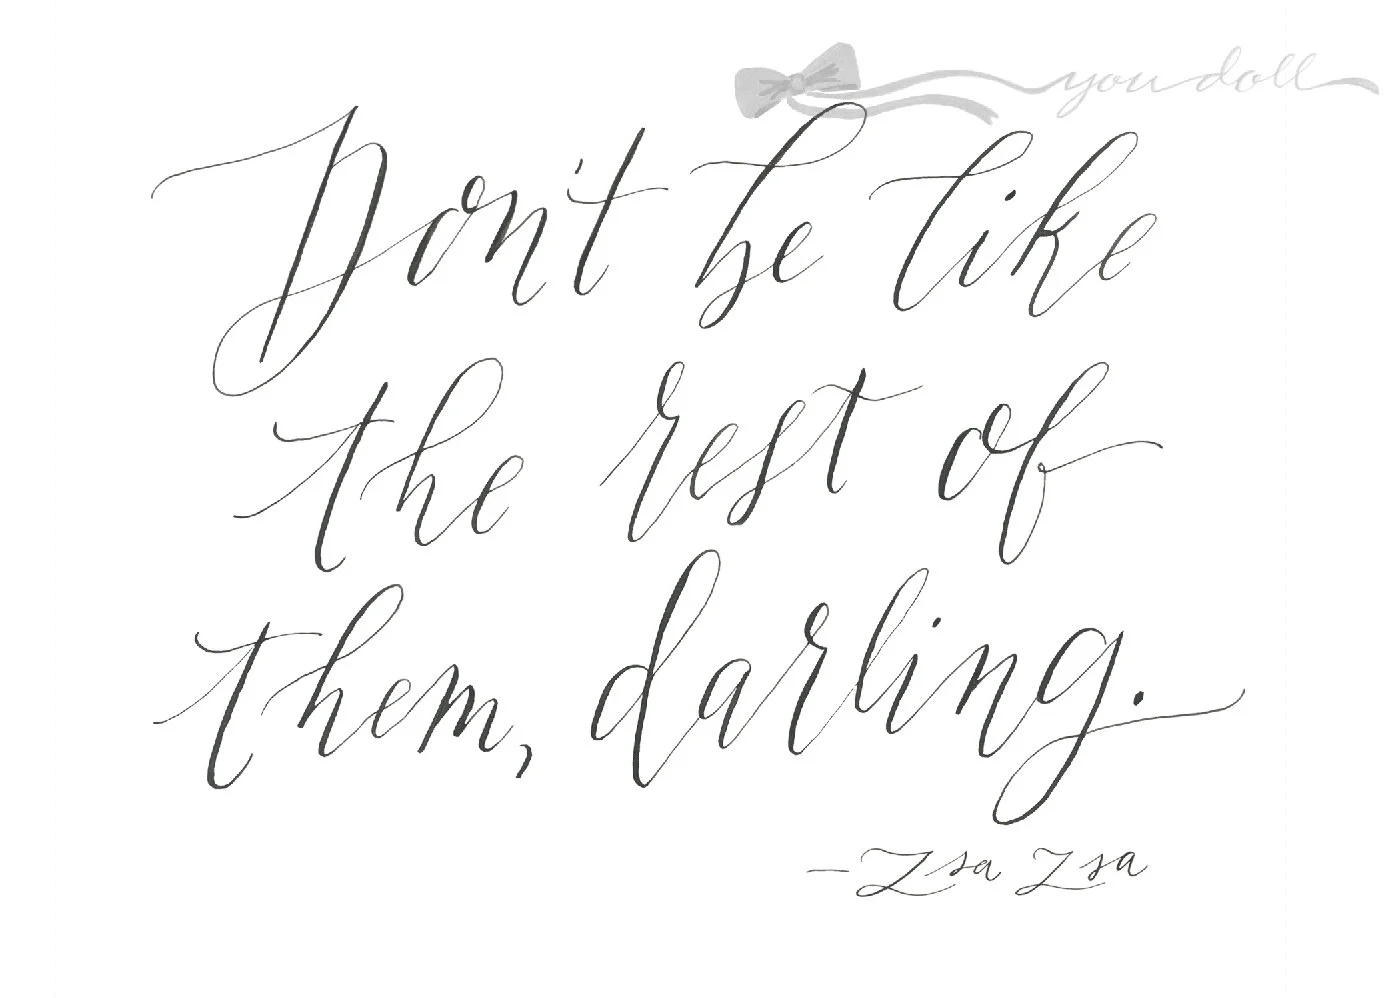 you doll
Don't be like
the rest of
them, darling.
- Zsa Zsa